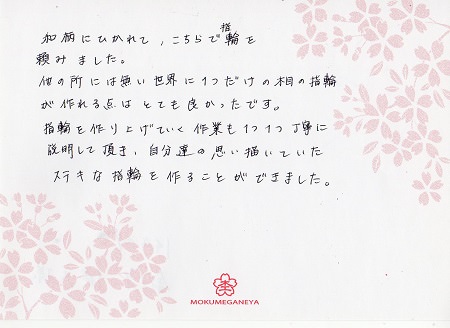 和柄にひかれて、こちらで指輪を
頼みました。
他の所には無い世界に1つだけの木目の指輪
が作れる点はとても良かったです。
指輪を作り上げていく作業も1つ1つ丁寧に
説明して頂き、自分達の思い描いていた
ステキな指輪を作ることができました。
MOKUMEGANEYA